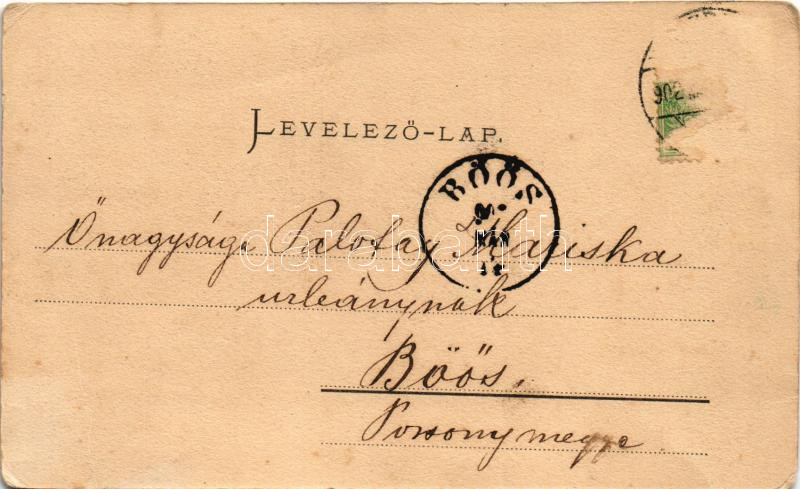 LEVELEZŐ-LAP.
902
BŐÖS
Őnagysága Palofay Mariska
urleánynak
Bőős.
Posonymegye
darabanth